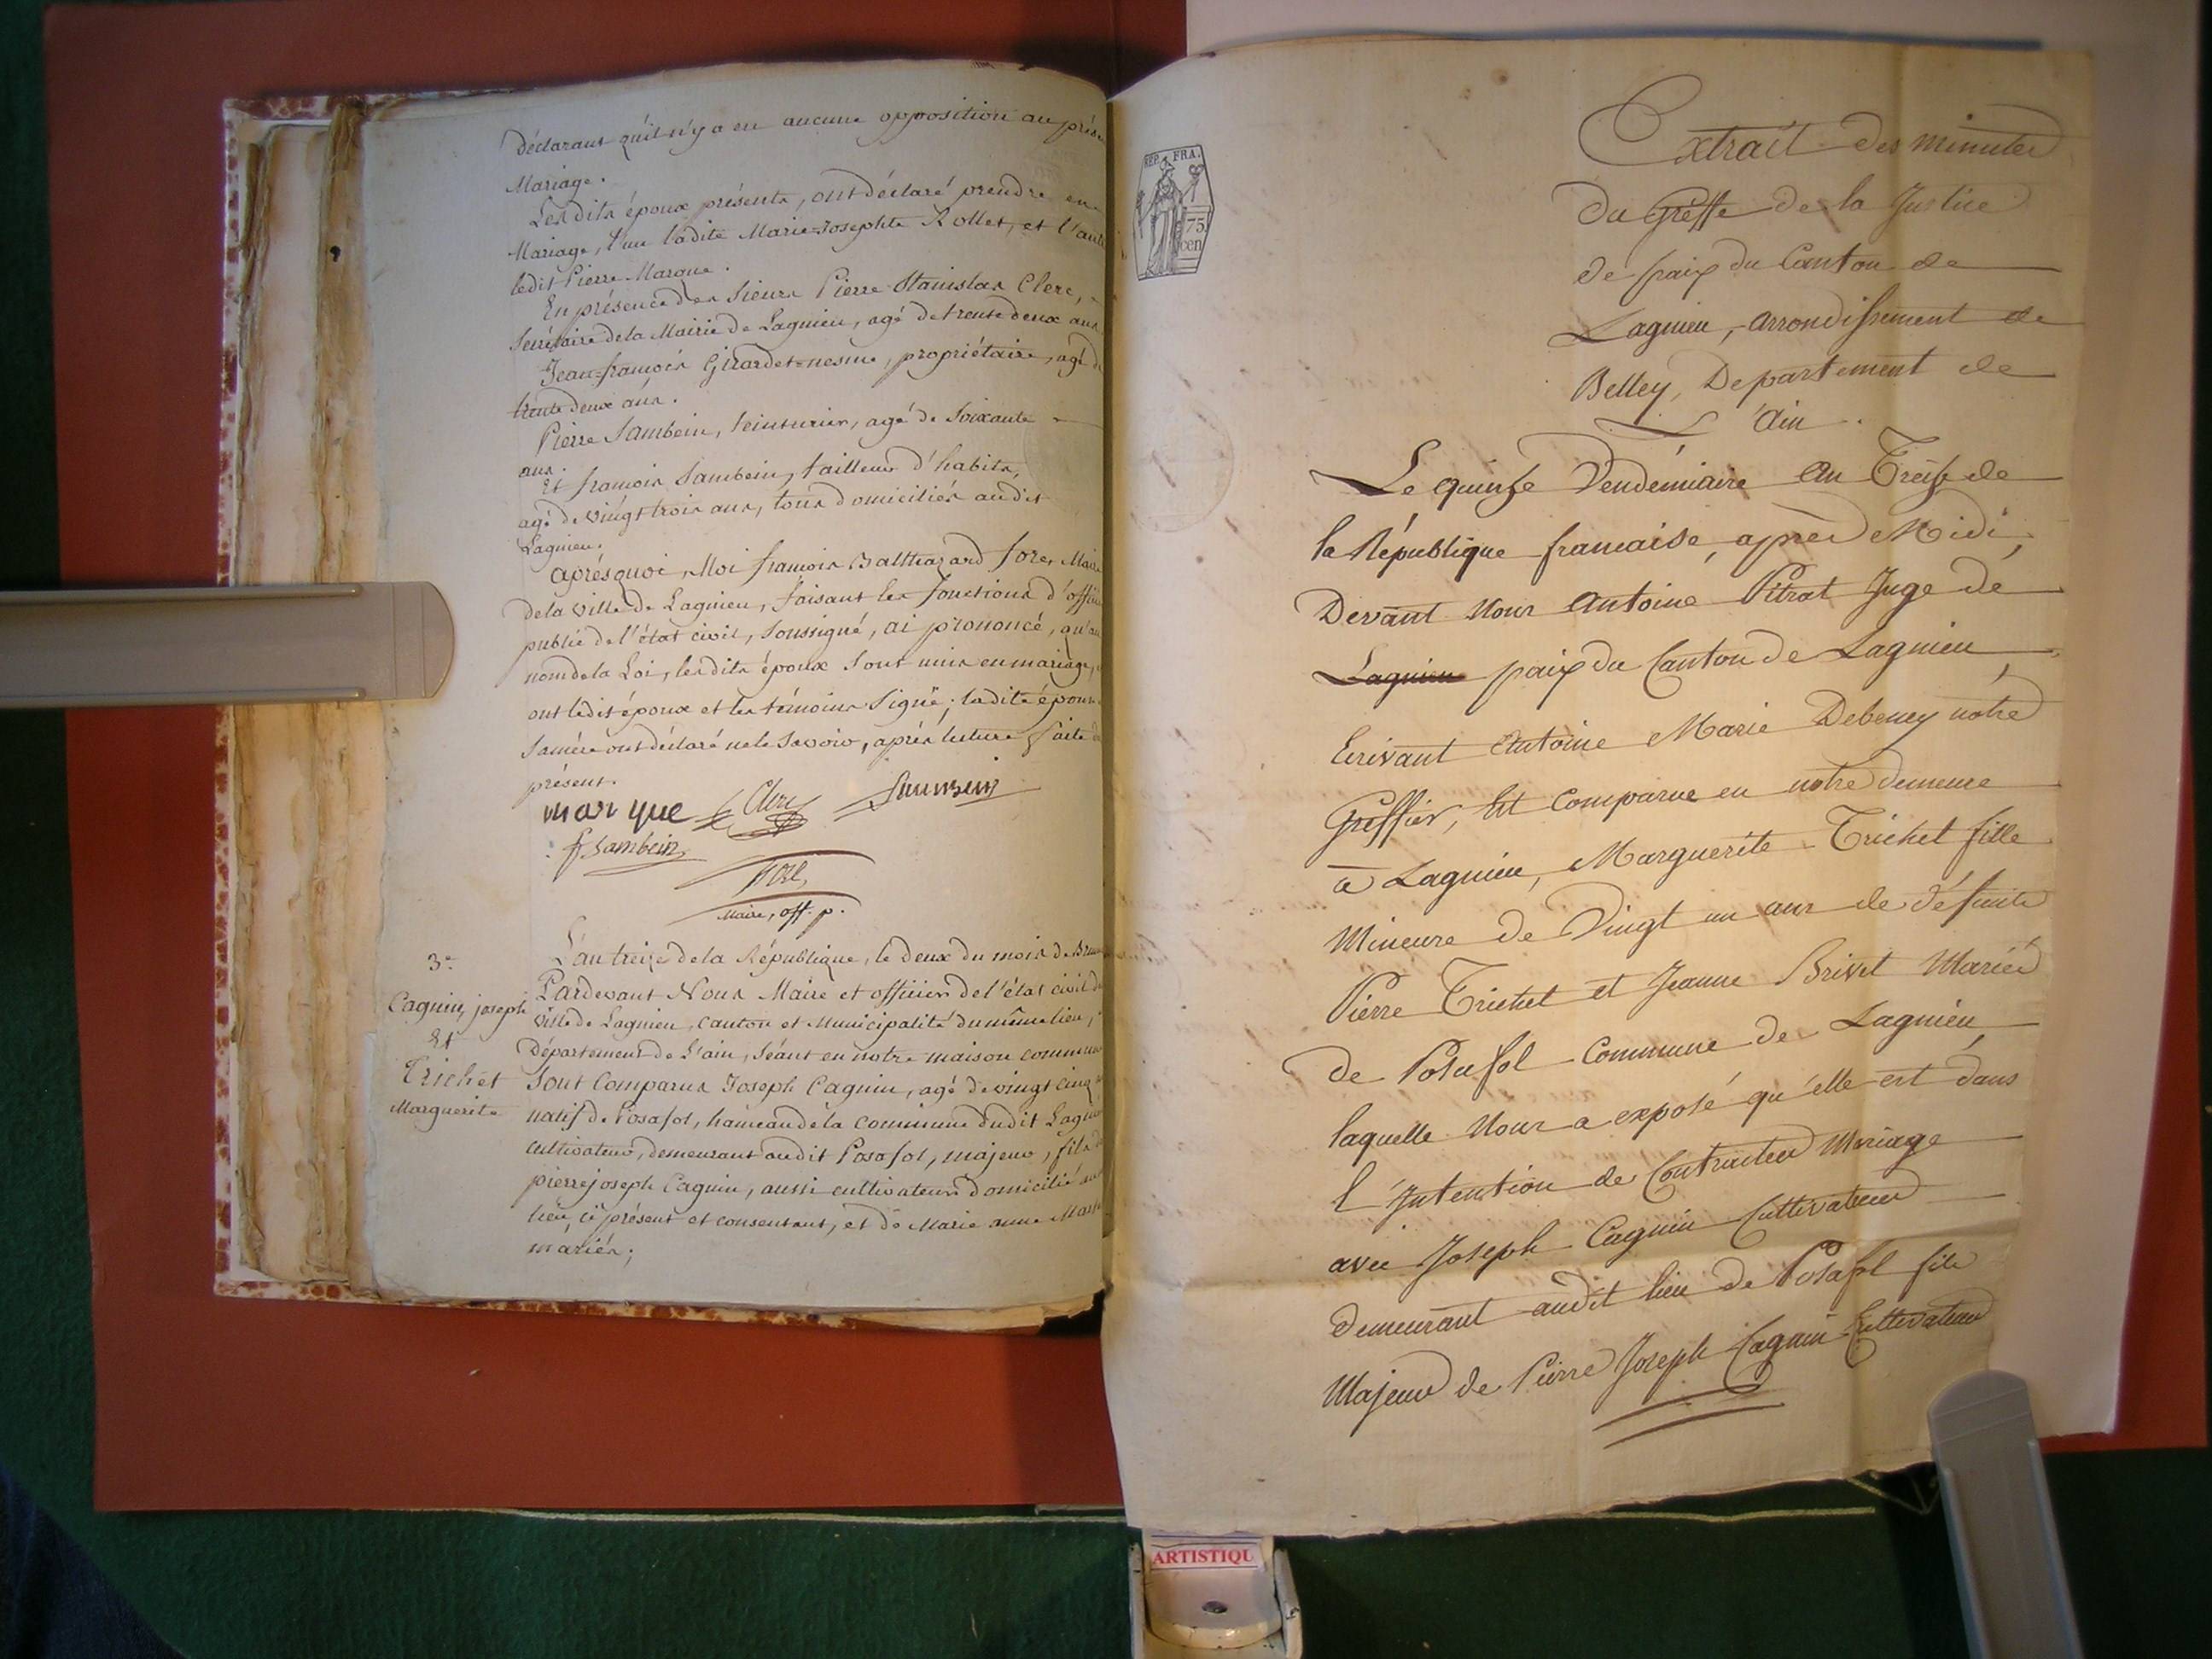 Déclarant qu'il n'y a eu aucune opposition au
Mariage.
Lesdits époux présents, ont déclaré prendre en
Mariage, l'un ladite Marie-Josephte Rollet, et l'autre
ledit Pierre Marque.
En présence des Sieurs Pierre Stanislas Clerc,
Secrétaire de la Mairie de Lagnieu, agé de trente deux ans
Jean-françois Girardet-nesme, propriétaire, agé de
trente deux ans.
Pierre Sambein, teinturier, agé de Soixante
ans.
Et françois Sambein, tailleur d'habits,
agé de vingt trois ans, tous domiciliés audit
Lagnieu.
après quoi, Moi françois Balthazard fore, Maire
de la ville de Lagnieu, faisant les fonctions d'officier
public de l'état civil, Soussigné, ai prononcé, qu'au
nom de la Loi, lesdits époux Sont unis en mariage,
ont ledit époux et les témoins Signé; ladite épouse
Sa mère ont déclaré ne le Savoir, après lecture faite du
présent.
marque Clerc Sambein
f. Sambein
fore,
Maire, off. p.
3e
Cagnin, joseph
Et
Trichet
Marguerite
L'an treize de la République, le deux du mois de
Pardevant Nous Maire et officier de l'état civil de
ville de Lagnieu, Canton et Municipalité du même lieu,
Département de L'ain, Séant en notre maison commune
Sont Comparus Joseph Cagnin, agé de vingt cinq
natif de Posafol, hameau de la commune dudit Lagnieu
cultivateur, demeurant audit Posafol, majeur, fils de
pierre joseph Cagnin, aussi cultivateur domicilié
lieu, ci présent et consentant, et de Marie anne
mariés;
REP. FRA.
75
cen
Extrait des minutes
Du Greffe de la Justice
de paix du Canton de
Lagnieu, arrondissement de
Belley, Departement de
L'Ain.
Le quinze Vendémiaire An Treize de
la République francaise, après Midi,
Devant Nous Antoine Pitrat Juge de
Lagnieu paix du Canton de Lagnieu,
Ecrivant Antoine Marie Debeney notre
Greffier, Est Comparue en notre demeure
à Lagnieu, Marguerite Trichet fille
Mineure de Vingt un ans de défunts
Pierre Trichet et Jeanne Brivet Mariés
de Posafol Commune de Lagnieu,
laquelle Nous a exposé qu'elle est dans
l'Intention de Contracter Mariage
avec Joseph Cagnin Cultivateur
demeurant audit lieu de Posafol fils
Majeur de Pierre Joseph Cagnin Cultivateur
ARTISTIQU